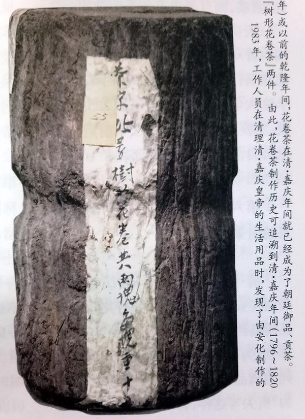 55
茶 樹 花卷共兩塊 重十
1983年，工作人员在清理清·嘉庆皇帝的生活用品时，发现了由安化制作的
『树形花卷茶』两件。由此，花卷茶制作历史可追溯到清·嘉庆年间(1796～1820
年）或以前的乾隆年间，花卷茶在清·嘉庆年间就已经成为了朝廷御品、贡茶。